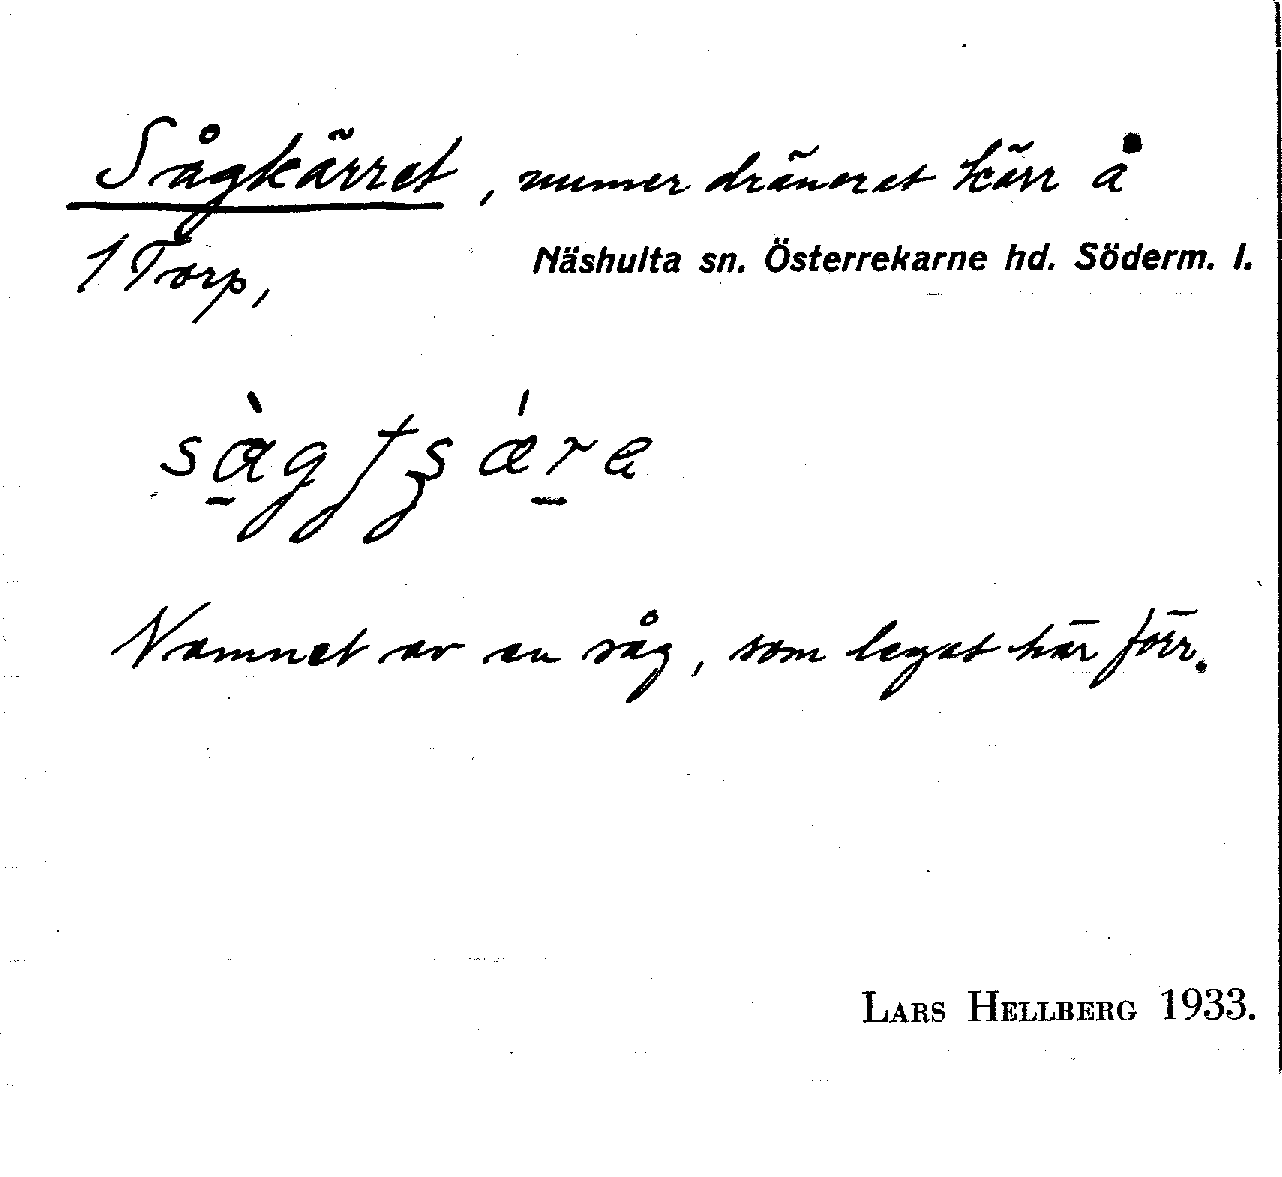 Sågkärret, numer dränerat kärr å
1 Torp,
Näshulta sn. Österrekarne hd. Söderm. l.
Namnet av en såg, som legat här förr.
LARS HELLBERG 1933.